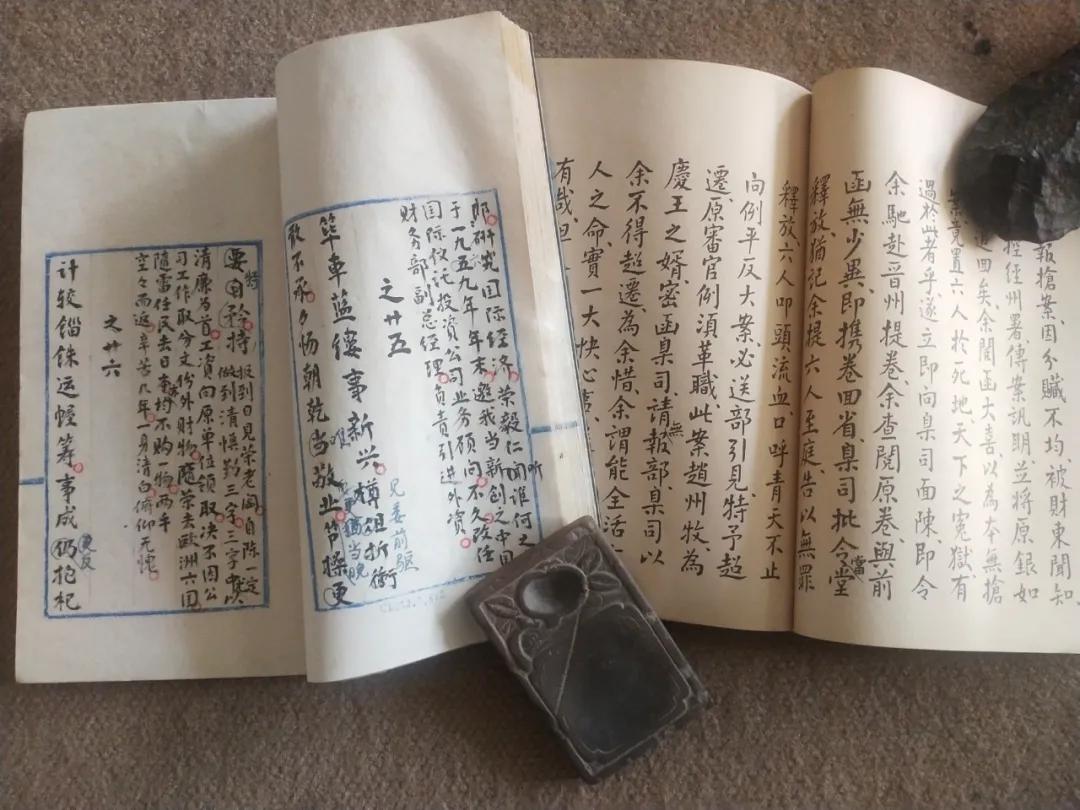 報搶案因分贜不均、被財東聞知、
控經州署、傳案訊明、並將原銀如
追回矣、余閱函大喜、以為本無搶
案竟置六人於死地、天下之寃獄、有
過於此者乎、遂立即向臬司面陳、即令
余馳赴晉州提卷、余查閱原卷與前
函無少異、即携卷回省、臬司批令當堂
釋放、猶記余提六人至庭、告以無罪
釋放、六人叩頭流血、口呼青天不止
向例平反大案、必送部引見、特予超
遷、原審官例須革職、此案趙州牧、為
慶王之婿、密函臬司、請無報部、臬司以
余不得超遷、為余惜、余謂能全活
人之命、實一大快心事、
有哉、但
郎研究国际经济荣毅仁闻听谁何之
于一九五九年年末邀我当新创之中国
国际信托投资公司业务顾问不久改任
财务部副总经理负责引进外资
之廿五
筚車蓝偻事新兴樽俎折衝
见委前驱
敢不承夕惕朝乾当敬业节操更
唯
犹当晚
要特自矜持报到日见荣老阎自陈一定
做到清慎勤三字三字中以
清廉为首工资向原单位领取决不因公
司工作取分文份外财物随荣去欧洲六国
随雷任民去日本均不购一物两手
空々而返辛苦几年一身清白俯仰无愧
之廿六
计较锱銖运幄筹事成仍抱杞
更反